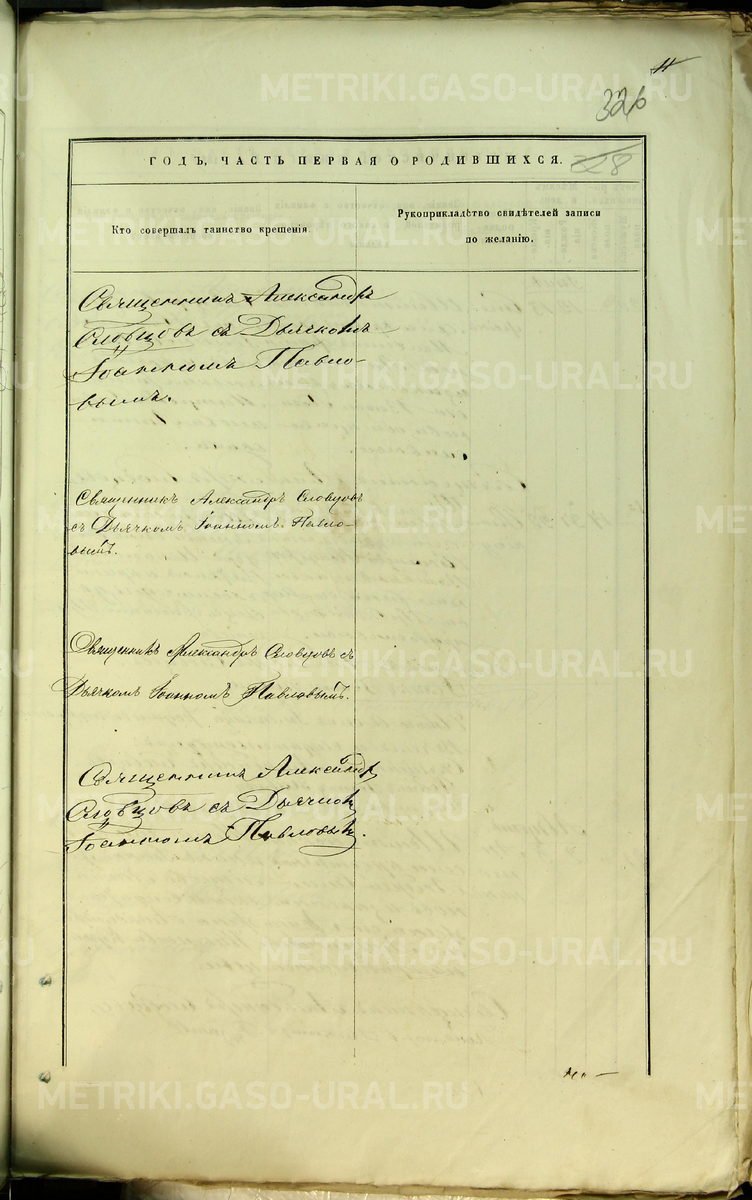 METRIKI.GASO-URAL.RU
11
326
ГОДЪ, ЧАСТЬ ПЕРВАЯ О РОДИВШИХСЯ. 28
Кто совершалъ таинство крещенія.
Рукоприкладѣтво свидѣтелей записи
по желанію.
Священникъ Александръ
Словцовъ съ Дьячкомъ
Іоанномъ Павло-
вымъ.
Священникъ Александръ Словцовъ
съ Дьячкомъ Іоанномъ Павло-
вымъ.
Священникъ Александръ Словцовъ съ
Дьячкомъ Іоанномъ Павловымъ.
Священникъ Александръ
Словцовъ съ Дьячкомъ
Іоанномъ Павловымъ.
METRIKI.GASO-URAL.RU